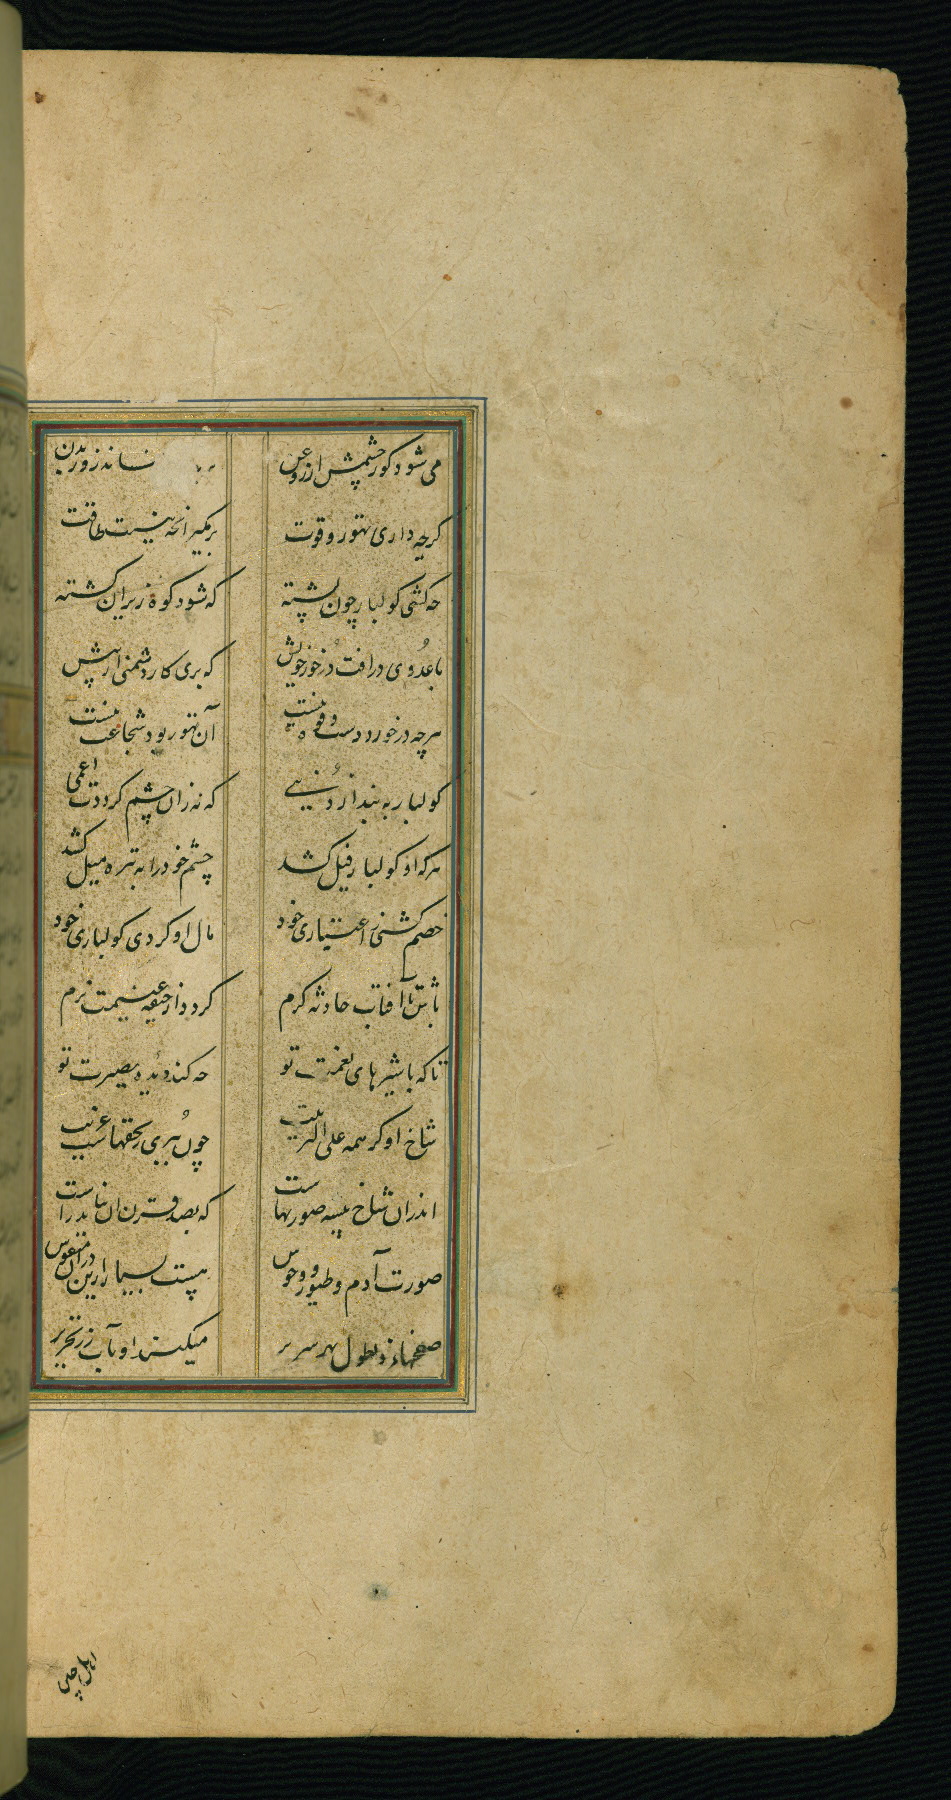 می شود کور چشمش از روغن
گرچه داری تهور و قوت برمگیر آنچه نیست طاقت
چه کشی کولبار چون پشته که شود کوه زیر آن کشته
با عدوی درافت در خور خویش که بری کار دشمنی از پیش
هرچه در خورد دست و قوه نیست آن تهور بود شجاعت نیست
کولبار به بند از دنیی که نه زان چشم گرددت اعمی
هرکه او کولبار فیل کشد چشم خود را به تیره میل کشد
خصم کشی ز اختیاری خود مال او کردی کولباری خود
باش تا آفتاب حادثه گرم گردد از جیفه غنیمت نرم
تا که با شیرهای نعمت تو چه کند دیده بصیرت تو
شاخ او گر همه علی التربیت چون ببری بحقهاست غریب
اندران شاخ بیسه صورتهاست که بصد قرن ان نیاید راست
صورت آدم و طیور و وحوش هست بسیار ازین دران منقوش
صفحهاء ز طول هر سریر میکنند او بآب زر تحریر
اهل چین